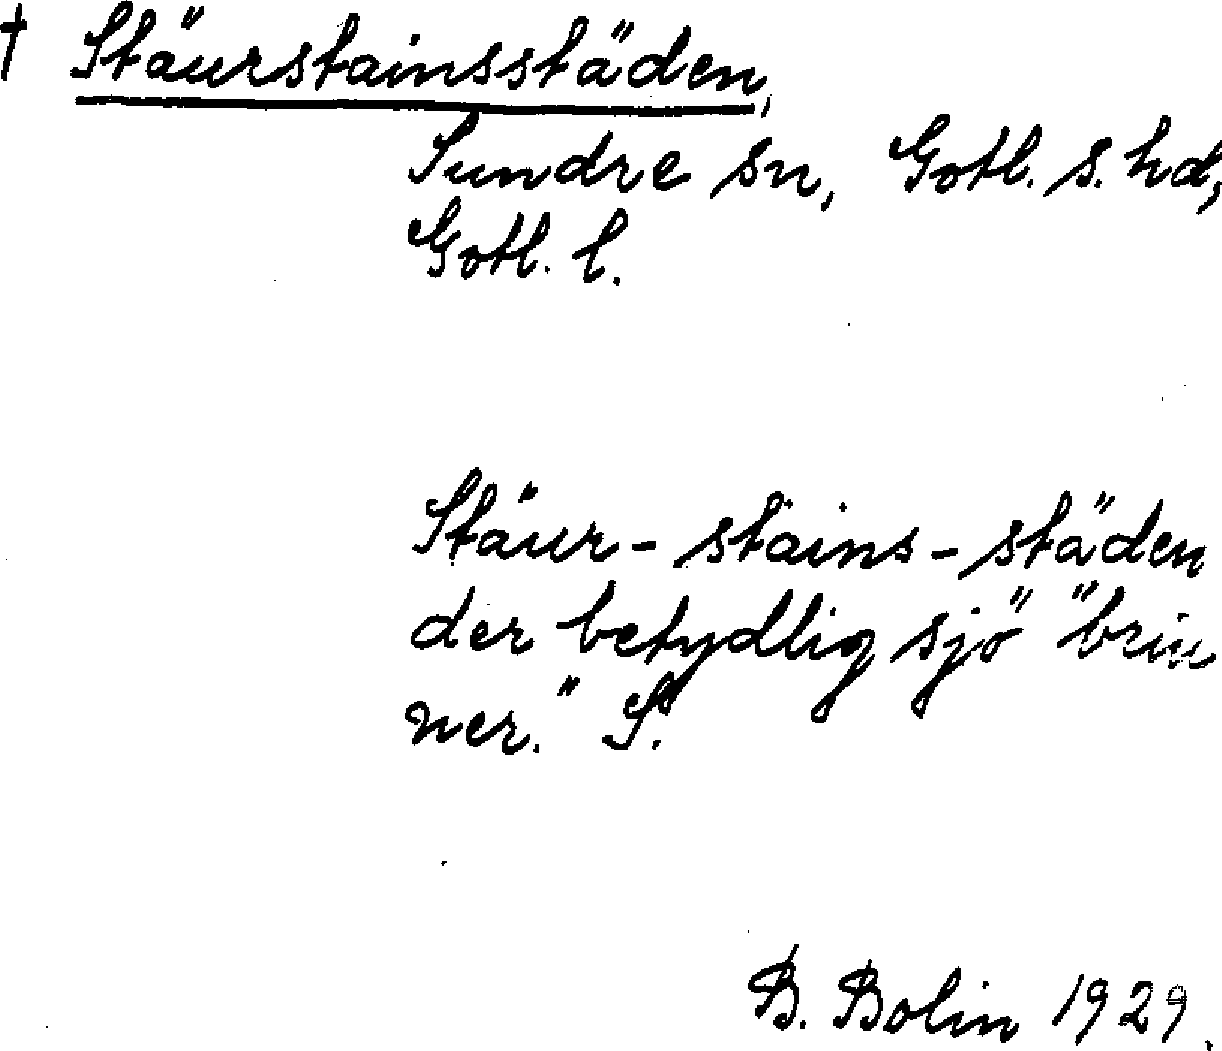 † Stäurstainsstäden,
Sundre sn, Gotl. s. hd,
Gotl. l.
Stäur-stains-städen
der betydlig sjö "brin
ner." S.
B. Bolin 1929.